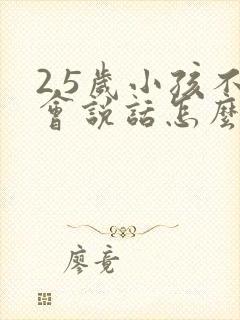 2.5歲小孩不
會說話怎麼
廖竟